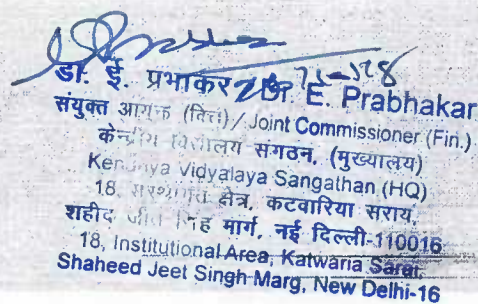 डा. ई. प्रभाकर Dr. E. Prabhakar
संयुक्त आयुक्त (वित्त) / Joint Commissioner (Fin.)
केन्द्रीय विद्यालय संगठन, (मुख्यालय)
Kendriya Vidyalaya Sangathan (HQ)
18, संस्थागत क्षेत्र, कटवारिया सराय,
शहीद जीत सिंह मार्ग, नई दिल्ली-110016
18, Institutional Area, Katwaria Sarai,
Shaheed Jeet Singh Marg, New Delhi-16